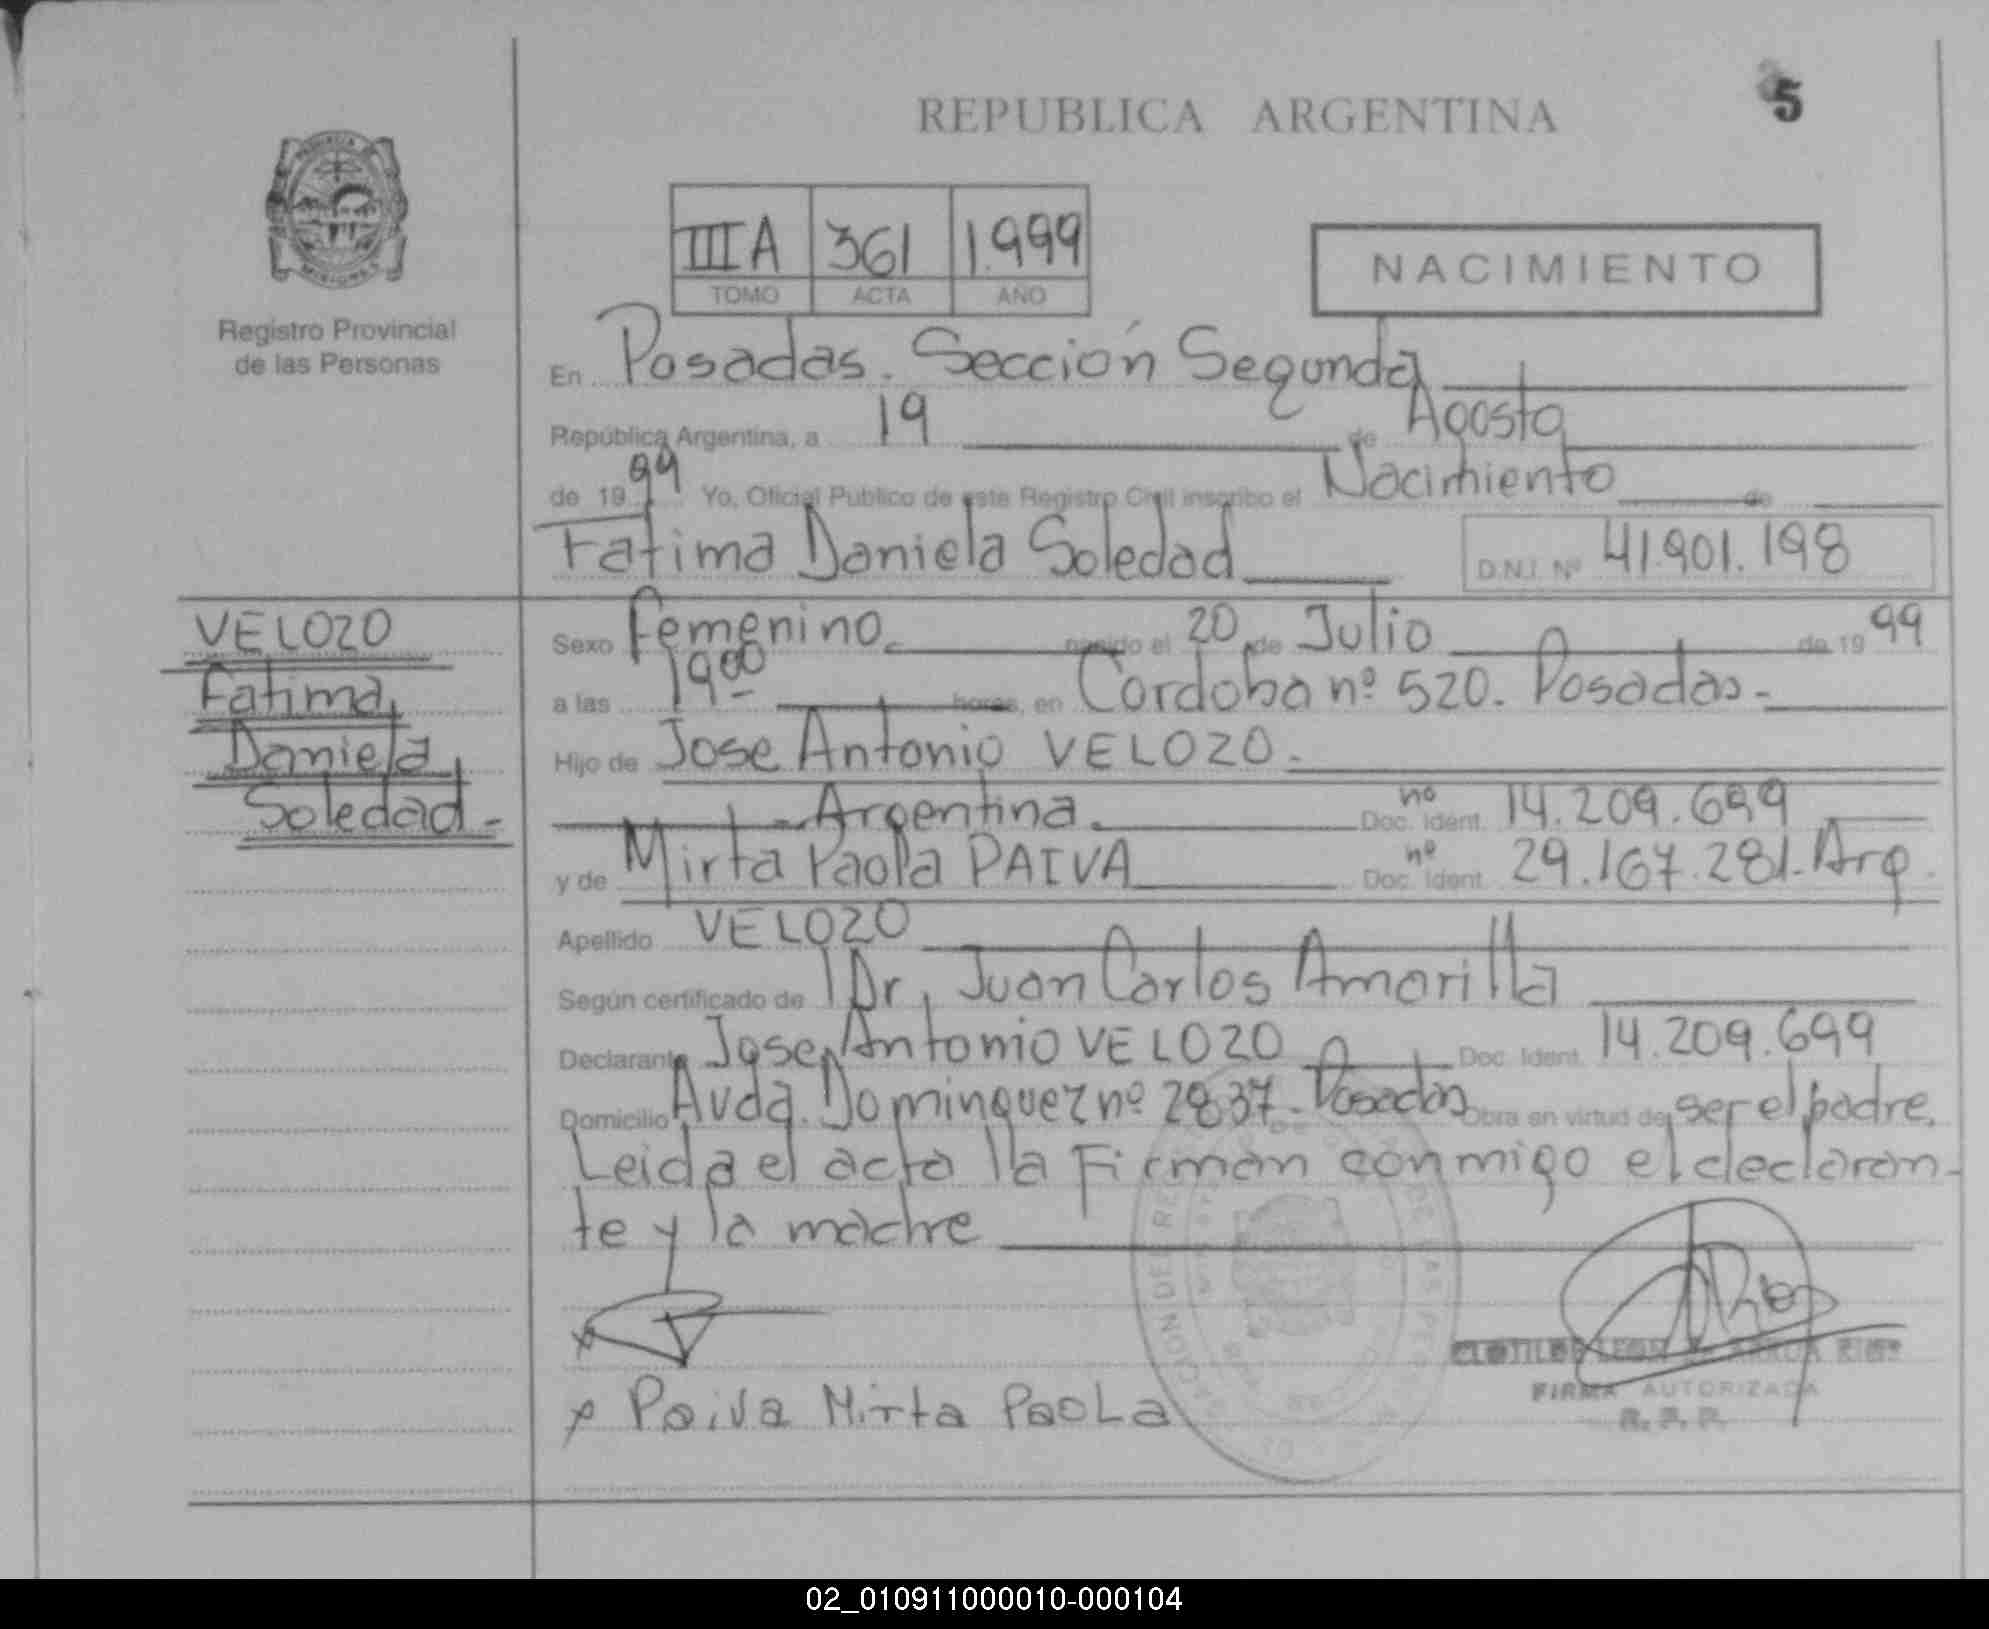 REPUBLICA ARGENTINA
5
PROVINCIA
MISIONES
Registro Provincial
de las Personas
IIIA 361 1.999
TOMO ACTA AÑO
NACIMIENTO
En Posadas. Sección Segunda
República Argentina, a 19 de Agosto
de 1999 Yo, Oficial Publico de este Registro Civil inscribo el Nacimiento de
Fatima Daniela Soledad D.N.I. Nº 41.901.198
VELOZO
Fatima
Daniela
Soledad-
Sexo Femenino. nacido el 20 de Julio de 1999
a las 19 00 horas, en Cordoba nº 520. Posadas.-
Hijo de Jose Antonio VELOZO.-
- Argentina. Doc. Ident. nº 14.209.699
y de Mirta Paola PAIVA Doc. Ident. nº 29.167.281. Arg.
Apellido VELOZO
Según certificado de Dr. Juan Carlos Amarilla
Declarante Jose Antonio VELOZO Doc. Ident. 14.209.699
Domicilio Avda. Dominguez nº 2837. Posadas Obra en virtud de ser el padre.
Leida el acta la Firman conmigo el declaran-
te y la madre
x Paiva Mirta PaoLa
FIRMA AUTORIZADA
R. P. P.
02_010911000010-000104